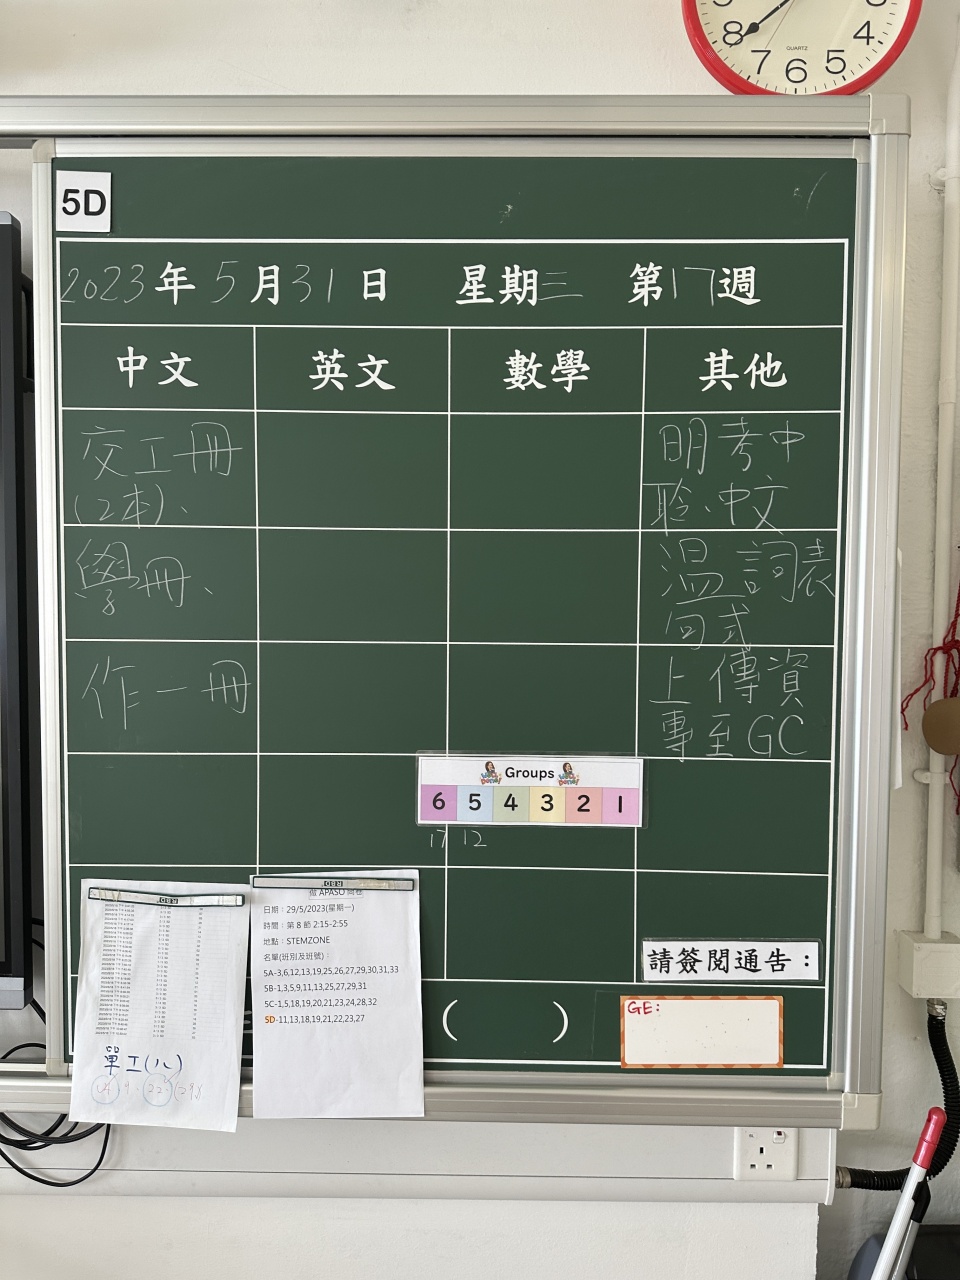 8 7 6 5 4
QUARTZ
5D
2023年5月31日 星期三 第17週
中文 英文 數學 其他
交工冊
(2本)、
學冊、
作一冊
明考中
聆、中文
溫 詞表
句式
上傳資
專至GC
Groups
6 5 4 3 2 1
17 12
RBD
單工(八)
RBD
做 APASO 問卷
日期：29/5/2023(星期一)
時間：第 8 節 2:15-2:55
地點：STEMZONE
名單(班別及班號)：
5A-3,6,12,13,19,25,26,27,29,30,31,33
5B-1,3,5,9,11,13,25,27,29,31
5C-1,5,18,19,20,21,23,24,28,32
5D-11,13,18,19,21,22,23,27
( )
請簽閱通告：
GE: